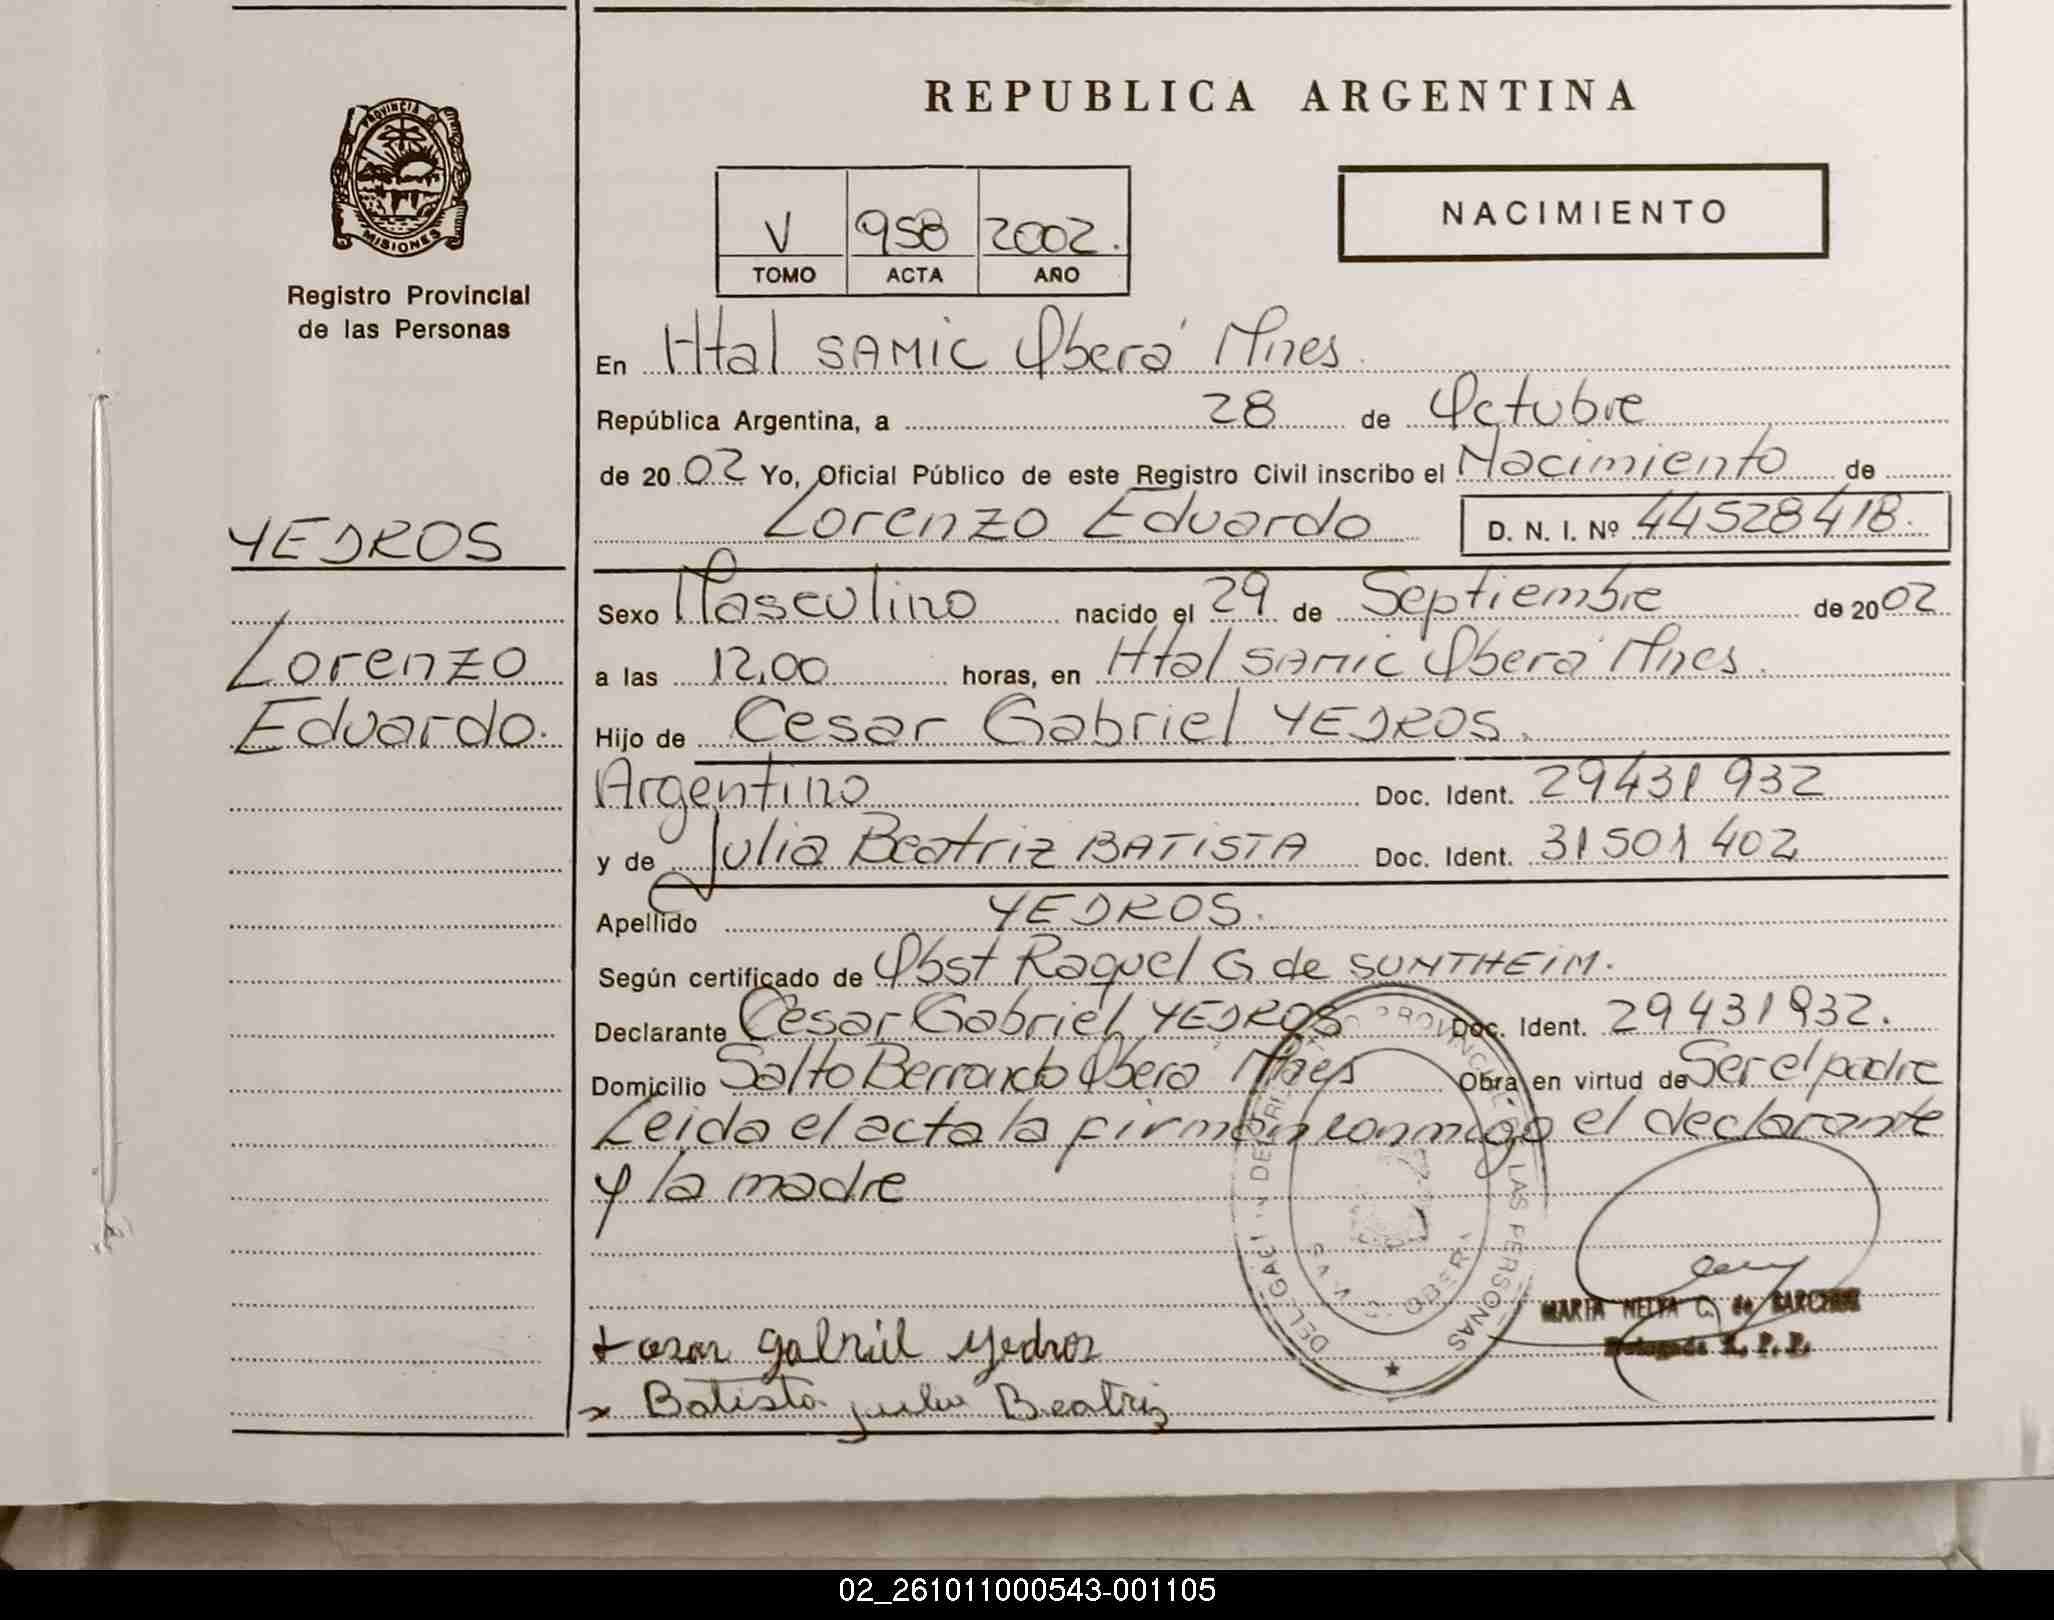 REPUBLICA ARGENTINA
PROVINCIA DE
MISIONES
Registro Provincial
de las Personas
V 958 2002.
TOMO ACTA AÑO
NACIMIENTO
En Htal SAMIC Oberá Mnes.
República Argentina, a 28 de Octubre
de 20 02 Yo, Oficial Público de este Registro Civil inscribo el Nacimiento de
Lorenzo Eduardo D. N. I. Nº 44528418.
YEDROS
Lorenzo
Eduardo.
Sexo Masculino nacido el 29 de Septiembre de 2002
a las 12,00 horas, en Htal SAMIC Oberá Mnes.
Hijo de Cesar Gabriel YEDROS.
Argentino Doc. Ident. 29431932
y de Julia Beatriz BATISTA Doc. Ident. 31501402
Apellido YEDROS.
Según certificado de Obst Raquel G. de SUNTHEIM.
Declarante Cesar Gabriel YEDROS Doc. Ident. 29431932.
Domicilio Salto Berrondo Oberá Mnes Obra en virtud de Ser el padre
Leida el acta la firman conmigo el declarante
y la madre
DE LAS PERSONAS
OBERA
MARIA NELVA C. de
Delegada R. P. P.
+ cesar gabriel yedros
x Batista julia Beatriz
02_261011000543-001105